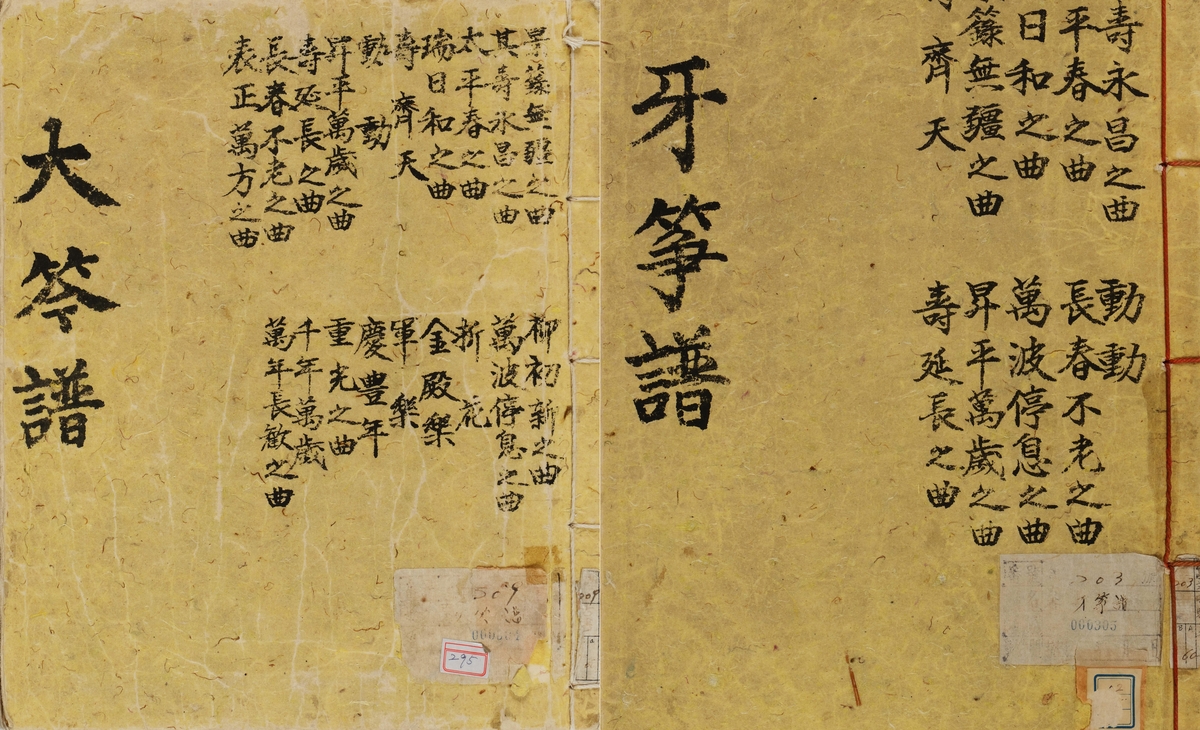 大笒譜
景籙無疆之曲
其壽永昌之曲
太平春之曲
瑞日和之曲
壽齊天
動動
昇平萬歲之曲
壽延長之曲
長春不老之曲
表正萬方之曲
柳初新之曲
萬波停息之曲
折花
金殿樂
軍樂
慶豊年
重光之曲
千年萬歲
萬年長歡之曲
209
295
209
牙箏譜
壽永昌之曲
平春之曲
日和之曲
籙無疆之曲
齊天
動動
長春不老之曲
萬波停息之曲
昇平萬歲之曲
壽延長之曲
203
牙箏譜
000305
203